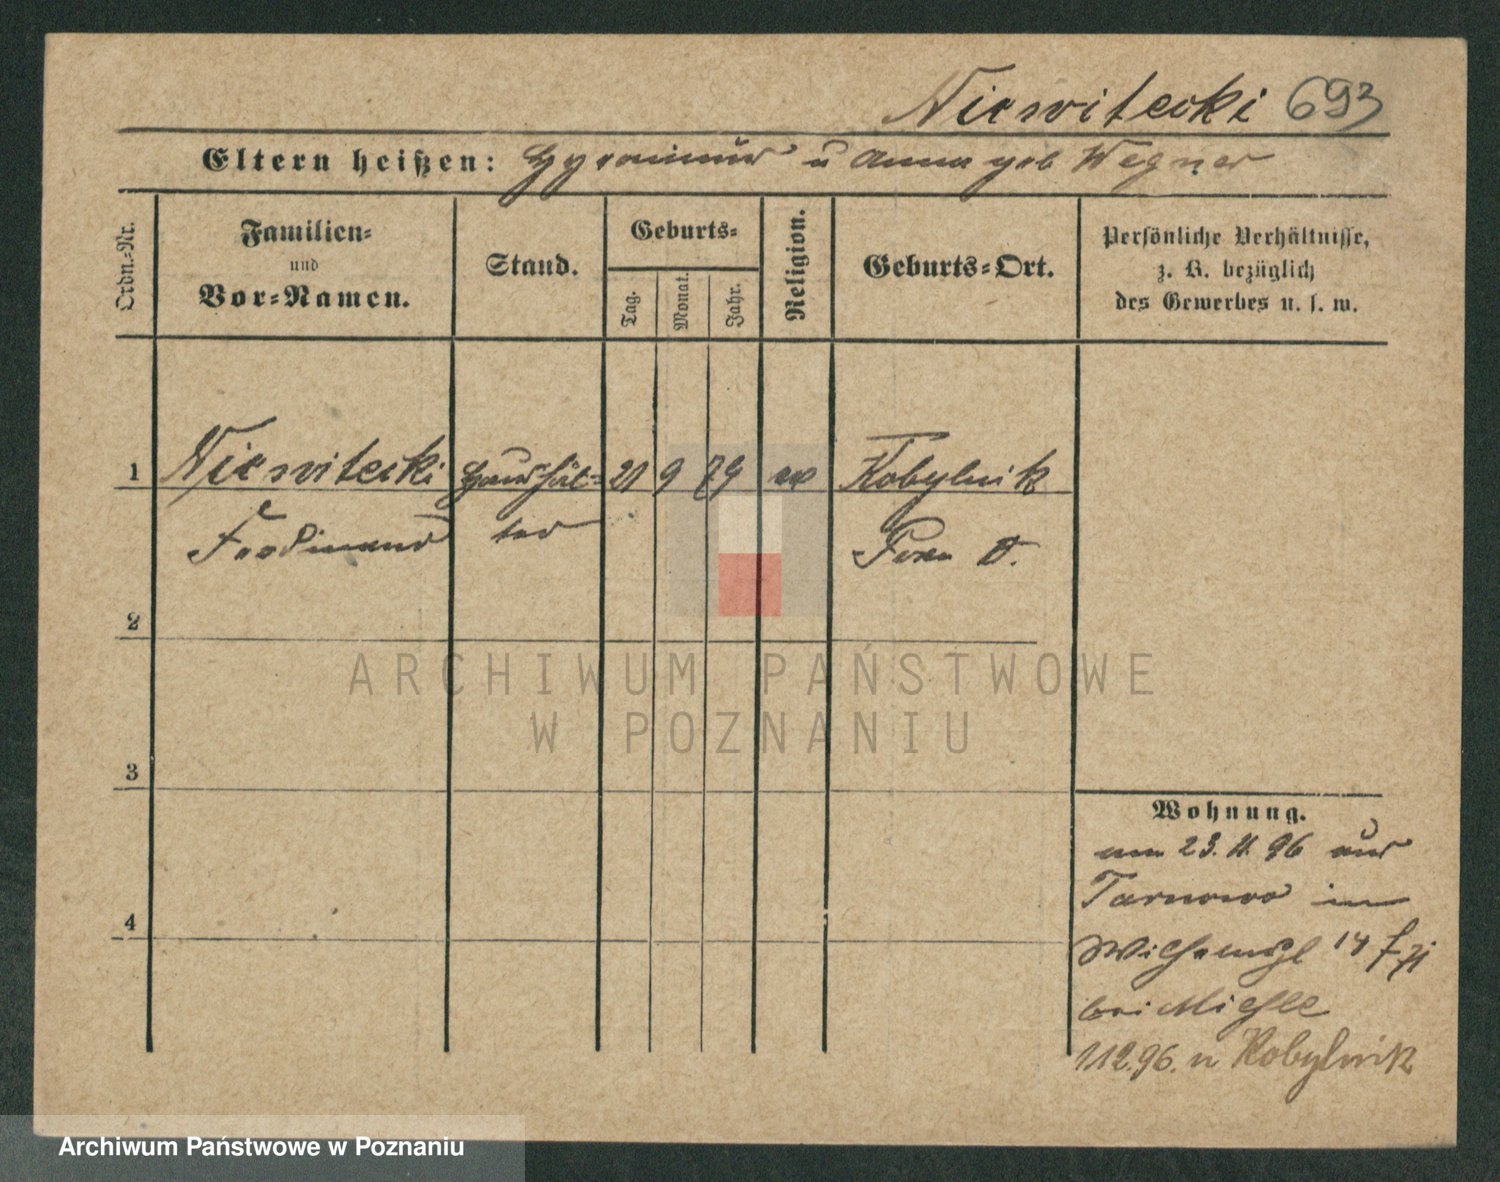 Niesvitecki 693
Eltern heißen: Hyronimus u Anna geb Wegner
Ordn.-Nr.
Familien-
und
Vor-Namen.
Stand.
Geburts-
Tag.
Monat.
Jahr.
Religion.
Geburts-Ort.
Persönliche Verhältnisse,
z. B. bezüglich
des Gewerbes u. s. w.
1 Niesvitecki Haushäl- 21 9 79 Kobylnik
Ferdinand ter Posen O.
2
3
4
Wohnung.
am 23.11.96 aus
Tarnowo in
Wilhemspl 14
bei Miehle
1.12.96. n Kobylnik
ARCHIWUM PAŃSTWOWE
W POZNANIU
Archiwum Państwowe w Poznaniu